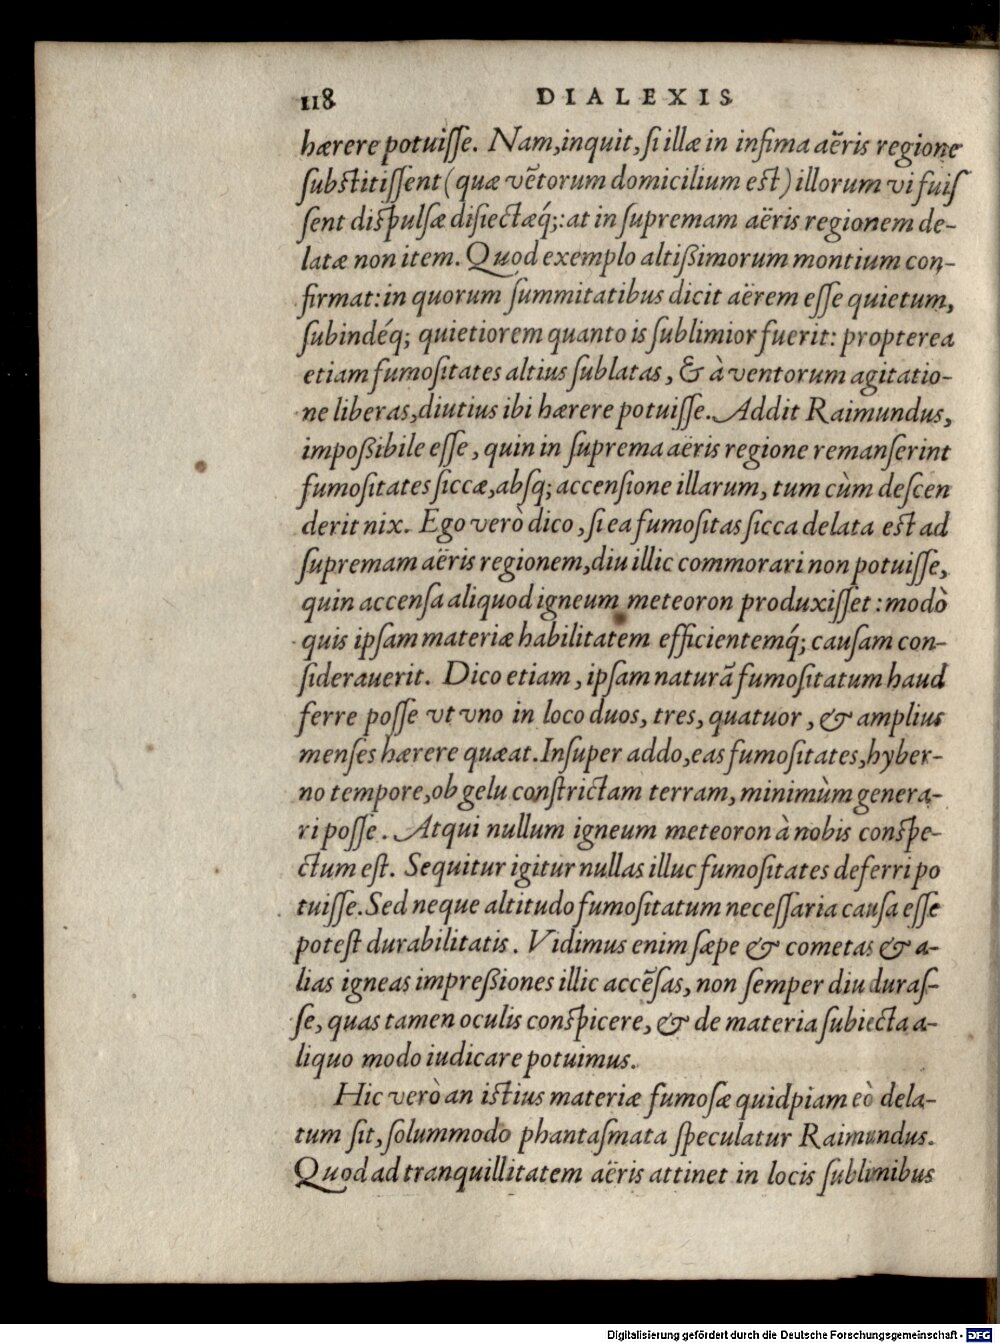 118 DIALEXIS
hærere potuiſſe. Nam, inquit, ſi illæ in infima aëris regione
ſubſtitiſſent (quæ vẽtorum domicilium eſt) illorum vi fuiſ
ſent diſpulſæ diſiectæq́;: at in ſupremam aëris regionem de-
latæ non item. Quod exemplo altißimorum montium con-
firmat: in quorum ſummitatibus dicit aërem eſſe quietum,
ſubindéq; quietiorem quanto is ſublimior fuerit: propterea
etiam fumoſitates altius ſublatas, & à ventorum agitatio-
ne liberas, diutius ibi hærere potuiſſe. Addit Raimundus,
impoßibile eſſe, quin in ſuprema aëris regione remanſerint
fumoſitates ſiccæ, abſq; accenſione illarum, tum cùm deſcen
derit nix. Ego verò dico, ſi ea fumoſitas ſicca delata eſt ad
ſupremam aëris regionem, diu illic commorari non potuiſſe,
quin accenſa aliquod igneum meteoron produxiſſet: modò
quis ipſam materiæ habilitatem efficientemq́; cauſam con-
ſiderauerit. Dico etiam, ipſam naturã fumoſitatum haud
ferre poſſe vt vno in loco duos, tres, quatuor, & amplius
menſes hærere quæat. Inſuper addo, eas fumoſitates, hyber-
no tempore, ob gelu conſtrictam terram, minimùm genera-
ri poſſe. Atqui nullum igneum meteoron à nobis conſpe-
ctum eſt. Sequitur igitur nullas illuc fumoſitates deferri po
tuiſſe. Sed neque altitudo fumoſitatum neceſſaria cauſa eſſe
poteſt durabilitatis. Vidimus enim ſæpe & cometas & a-
lias igneas impreßiones illic accẽſas, non ſemper diu duraſ-
ſe, quas tamen oculis conſpicere, & de materia ſubiecta a-
liquo modo iudicare potuimus.
Hic verò an iſtius materiæ fumoſæ quidpiam eò dela-
tum ſit, ſolummodo phantaſmata ſpeculatur Raimundus.
Quod ad tranquillitatem aëris attinet in locis ſublimibus
Digitalisierung gefördert durch die Deutsche Forschungsgemeinschaft - DFG